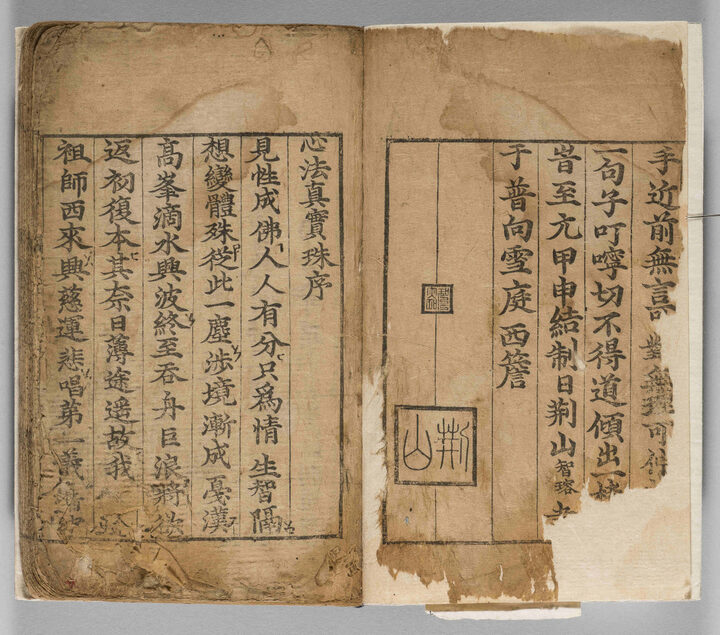 手近前無言對無理可
一句子叮嚀切不得道傾出一
旹至元甲申結制日荊山智
于普向雪庭西簷
荊山
心法真實珠序
見性成佛人人有分只爲情生智隔
想變體殊從此一塵涉境漸成戞漢
高峯滴水興波終至吞舟巨浪將欲
返初復本其奈日薄途遥故我
祖師西來興慈運悲唱第一義